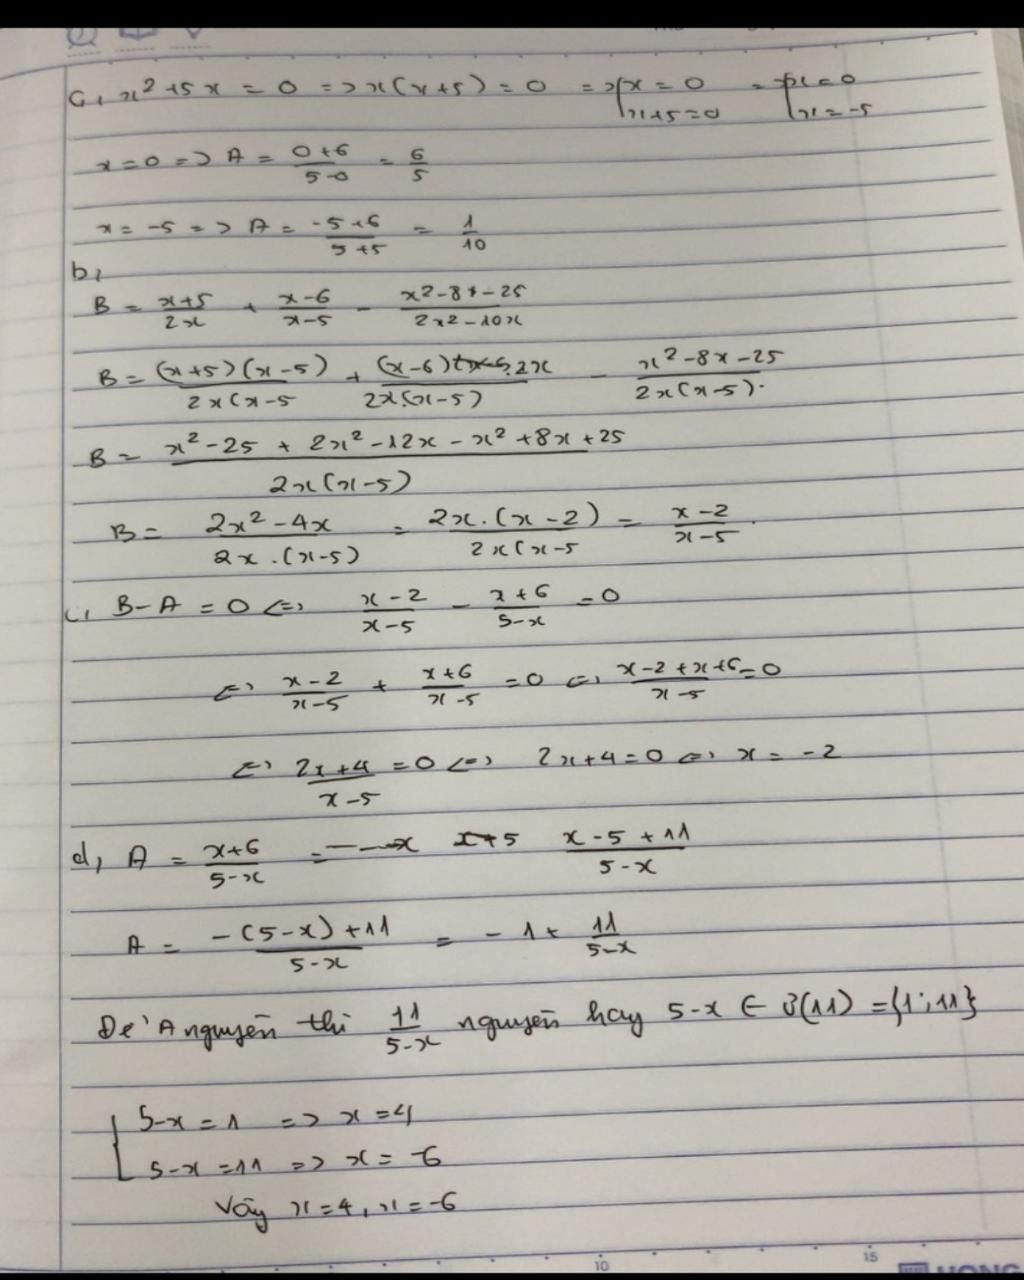 a, x² + 5x = 0 => x(x+5) = 0 => [x = 0 => [x = 0
[x+5 = 0 [x = -5
x = 0 => A = (0+6)/(5-0) = 6/5
x = -5 => A = (-5+6)/(5+5) = 1/10
b,
B = (x+5)/(2x) + (x-6)/(x-5) - (x²-8x-25)/(2x²-10x)
B = (x+5)(x-5)/(2x(x-5) + (x-6).2x/(2x.(x-5)) - (x²-8x-25)/(2x(x-5)).
B = (x²-25 + 2x²-12x - x² + 8x + 25)/(2x(x-5))
B = (2x²-4x)/(2x.(x-5)) = 2x.(x-2)/(2x(x-5) = (x-2)/(x-5).
c, B-A = 0 <=> (x-2)/(x-5) - (x+6)/(5-x) = 0
<=> (x-2)/(x-5) + (x+6)/(x-5) = 0 <=> (x-2+x+6)/(x-5) = 0
<=> (2x+4)/(x-5) = 0 <=> 2x+4 = 0 <=> x = -2
d, A = (x+6)/(5-x) = (x-5+11)/(5-x)
A = (-(5-x)+11)/(5-x) = -1 + 11/(5-x)
Để A nguyên thì 11/(5-x) nguyên hay 5-x ∈ Ư(11) = {1; 11}
[5-x = 1 => x = 4
[5-x = 11 => x = -6
Vậy x = 4, x = -6
10 15
HONG